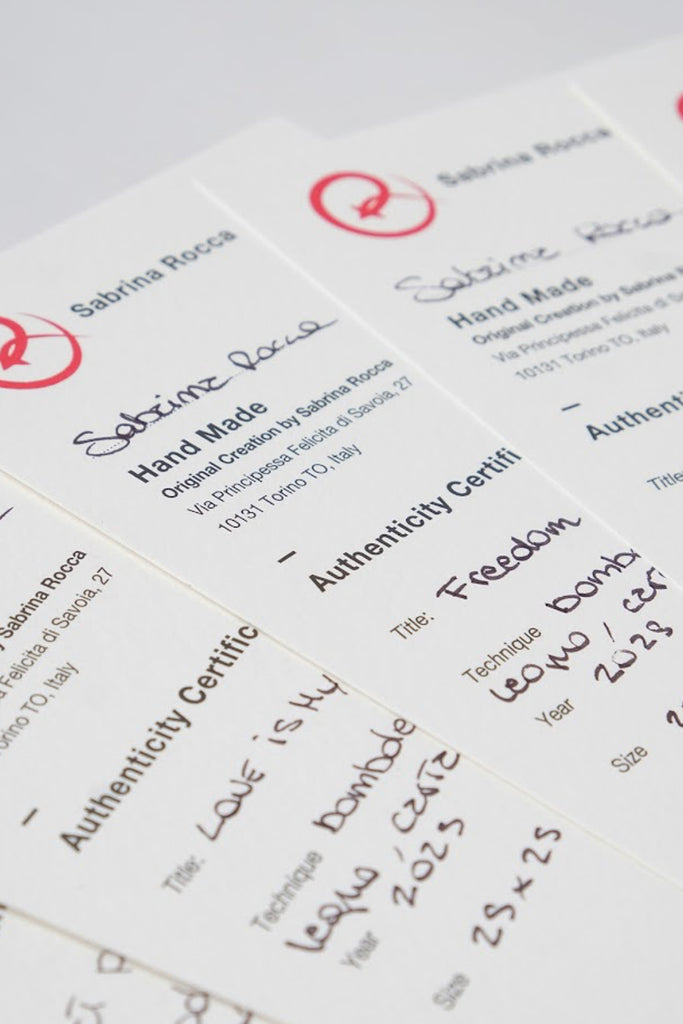 Sabrina Rocca
Sabrina Rocca
Hand Made
Original Creation by Sabrina Rocca
Via Principessa Felicita di Savoia, 27
10131 Torino TO, Italy
Authenticity Certifi
Title: Freedom
Technique
Year 2025
Size
Sabrina Rocca
Sabrina Rocca
Hand Made
Original Creation by Sabrina R
Via Principessa Felicita di S
10131 Torino TO, Italy
Authenti
Title:
y Sabrina Rocca
a Felicita di Savoia, 27
orino TO, Italy
Authenticity Certific
Title: LOVE is My
Technique
Year 2025
Size 25 x 25